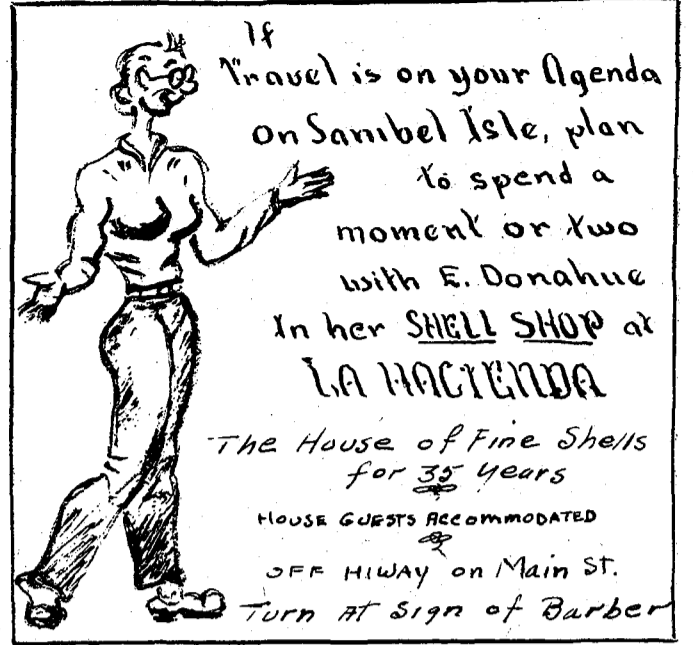 If
Travel is on your Agenda
on Sanibel Isle, plan
to spend a
moment or two
with E. Donahue
In her SHELL SHOP at
LA HACIENDA
The House of Fine Shells
for 35 years
HOUSE GUESTS ACCOMMODATED
OFF HIWAY on Main St.
Turn At Sign of Barber